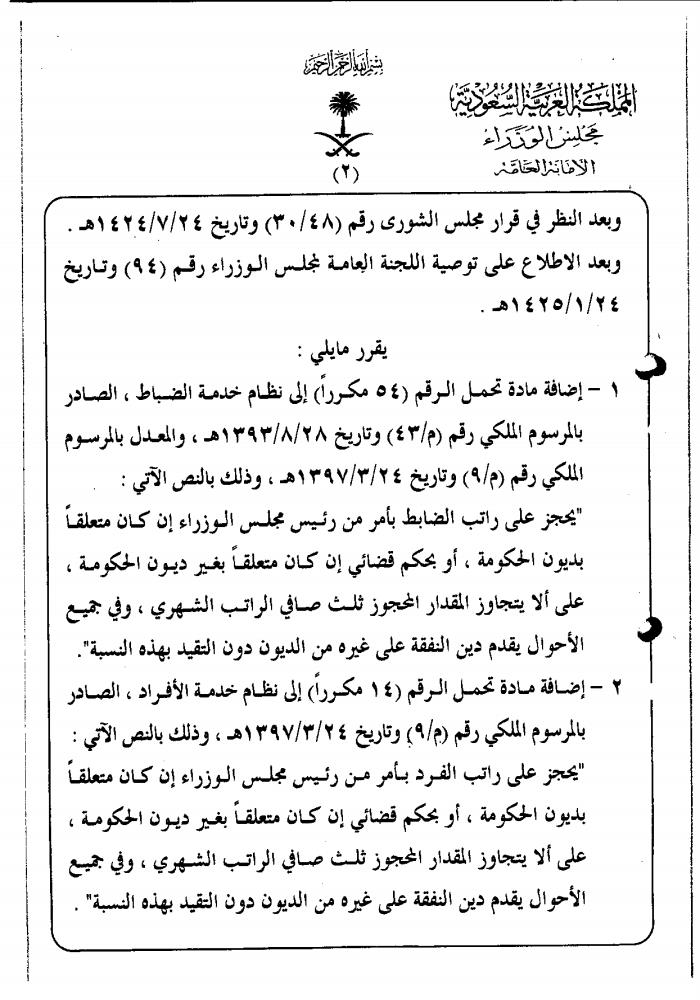 بسم الله الرحمن الرحيم
المملكة العربية السعودية
مجلس الوزراء
الأمانة العامة
(٢)
وبعد النظر في قرار مجلس الشورى رقم (٣٠/٤٨) وتاريخ ١٤٢٤/٧/٢٤هـ .
وبعد الاطلاع على توصية اللجنة العامة لمجلس الوزراء رقم (٩٤) وتاريخ
١٤٢٥/١/٢٤هـ .
يقرر مايلي :
١ – إضافة مادة تحمل الرقم (٥٤ مكرراً) إلى نظام خدمة الضباط ، الصادر
بالمرسوم الملكي رقم (م/٤٣) وتاريخ ١٣٩٣/٨/٢٨هـ ، والمعدل بالمرسوم
الملكي رقم (م/٩) وتاريخ ١٣٩٧/٣/٢٤هـ ، وذلك بالنص الآتي :
"يحجز على راتب الضابط بأمر من رئيس مجلس الوزراء إن كان متعلقاً
بديون الحكومة ، أو بحكم قضائي إن كان متعلقاً بغير ديون الحكومة ،
على ألا يتجاوز المقدار المحجوز ثلث صافي الراتب الشهري ، وفي جميع
الأحوال يقدم دين النفقة على غيره من الديون دون التقيد بهذه النسبة".
٢ – إضافة مادة تحمل الرقم (١٤ مكرراً) إلى نظام خدمة الأفراد ، الصادر
بالمرسوم الملكي رقم (م/٩) وتاريخ ١٣٩٧/٣/٢٤هـ ، وذلك بالنص الآتي :
"يحجز على راتب الفرد بأمر من رئيس مجلس الوزراء إن كان متعلقاً
بديون الحكومة ، أو بحكم قضائي إن كان متعلقاً بغير ديون الحكومة ،
على ألا يتجاوز المقدار المحجوز ثلث صافي الراتب الشهري ، وفي جميع
الأحوال يقدم دين النفقة على غيره من الديون دون التقيد بهذه النسبة" .